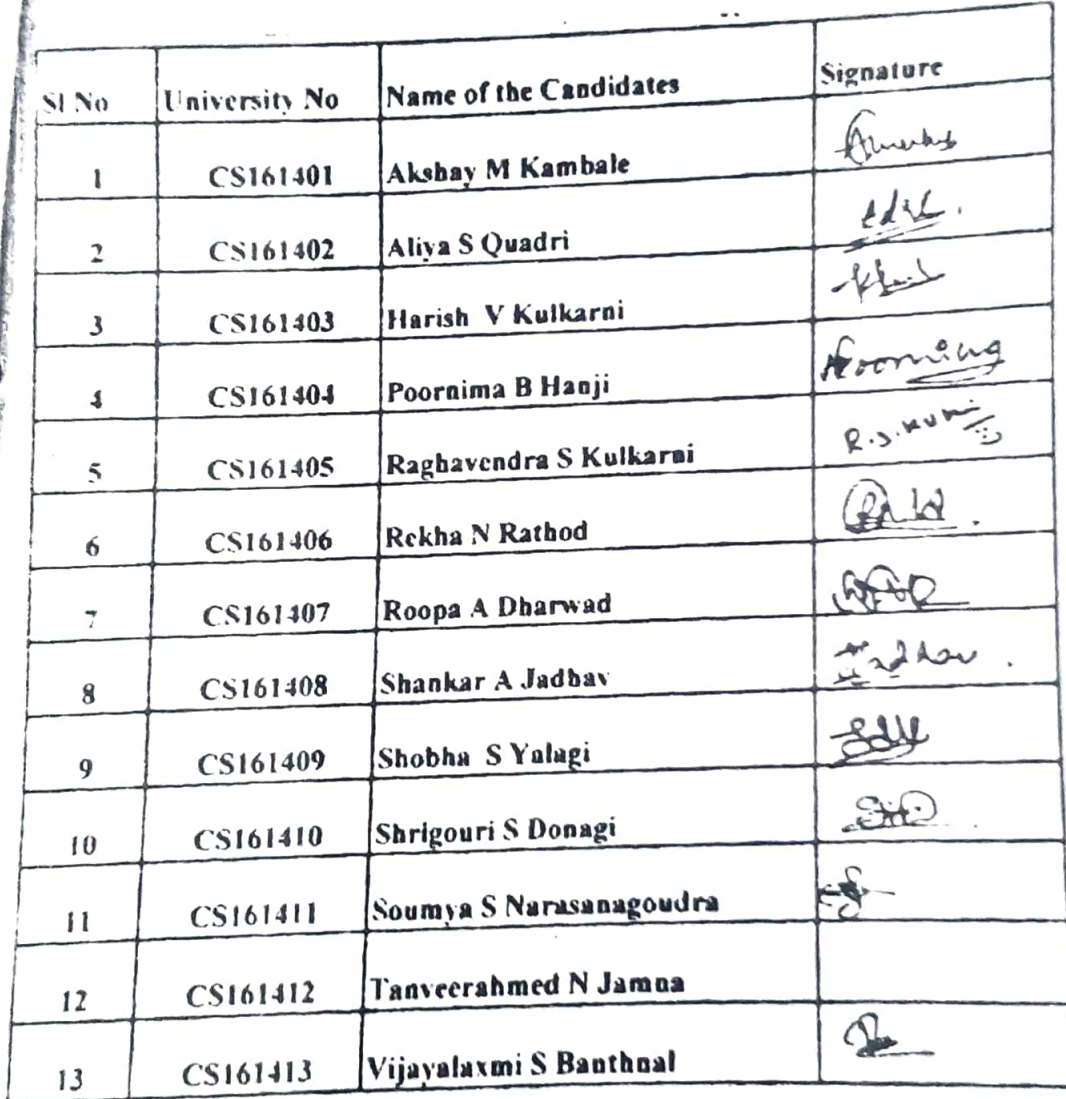 Sl No University No Name of the Candidates Signature
1 CS161401 Akshay M Kambale
2 CS161402 Aliya S Quadri
3 CS161403 Harish V Kulkarni
4 CS161404 Poornima B Hanji Poornima
5 CS161405 Raghavendra S Kulkarni
6 CS161406 Rekha N Rathod
7 CS161407 Roopa A Dharwad
8 CS161408 Shankar A Jadhav
9 CS161409 Shobha S Yalagi
10 CS161410 Shrigouri S Donagi
11 CS161411 Soumya S Narasanagoudra
12 CS161412 Tanveerahmed N Jamna
13 CS161413 Vijayalaxmi S Banthnal